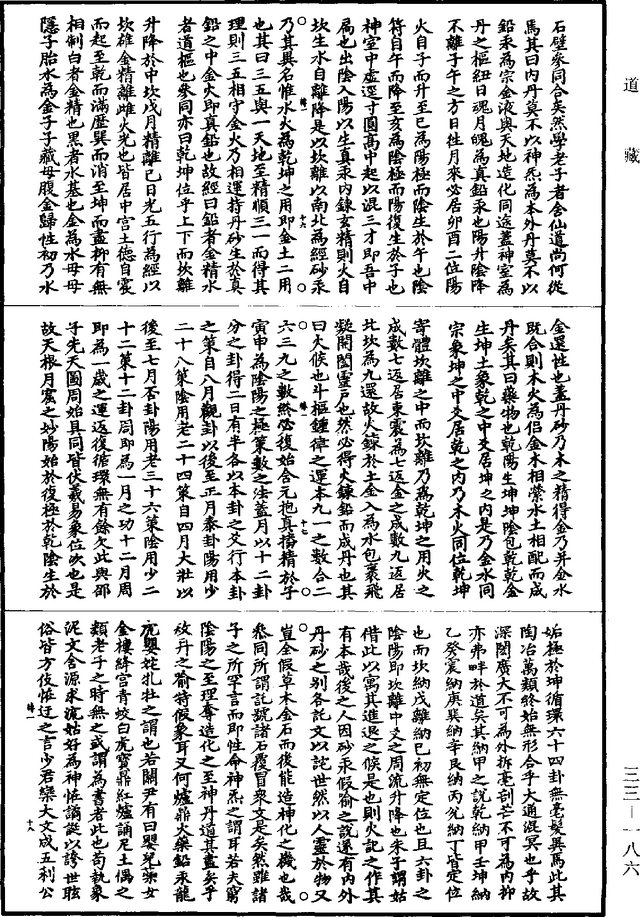 道藏
石壁參同合矣然學老子者舍仙道尚何從
焉其曰内丹莫不以神炁為本外丹莫不以
鉛汞為宗金液與天地造化同途蓋神室為
丹之樞紐日魂月魄為真鉛汞也陽升陰降
不離子午之方日往月來必居卯酉二位陽
火自子而升至巳為陽極而陰生於午也陰
符自午而降至亥為陰極而陽復生於子也
神室中虛逕寸圓高中起以混三才即吾中
局也出陰入陽以生真汞内鍊玄精則火自
坎生水自離降是以坎離以南北為經砂汞
乃其異名惟水火為乾坤之用即金土二用
也其曰三五與一天地至精順三一而得其
理則三五相守金火乃相運持丹砂生於真
鉛之中金火即真鉛也故經曰鉛者金精水
者道樞也參同亦曰乾坤位乎上下而坎離
升降於中坎戊月精離己日光五行為經以
坎雄金精離雌火光也皆居中宫土德自震
而起至乾而滿歷巽而消至坤而盡抑有無
相制白者金精也黑者水基也金為水母母
隱子胎水為金子子藏母腹金歸性初乃水
金還性也蓋丹砂乃木之精得金乃并金水
既合則木火為侣金木相縈水土相配而成
丹矣其曰藥物也乾陽生坤坤陰包乾乾金
生坤土象乾之中爻居坤之内是乃金水同
宗象坤之中爻居乾之内乃木火同位乾坤
寄體坎離之中而坎離乃為乾坤之用火之
成數七返居東震為七返金之成數九返居
此坎為九還故火鍊於土金入為水包裹飛
凝開闔靈戶也然必得火鍊鉛而成丹也其
曰火候也斗樞鍾律之運本九一之數合二
六三九之數終必復始含元抱真播精於子
寅申為陰陽之極策數之法蓋月以十二卦
分之卦得二日有半各以本卦之爻行本卦
之策自八月觀卦以後至正月泰卦陽用少
二十八策陰用老二十四策自四月大壯以
後至七月否卦陽用老三十六策陰用少二
十二策十二卦周即為一月之功十二月周
即為一歲之運返復循環無有餘欠此與邵
子先天圓周始具同皆伏羲易象位次也是
故天根月窟之妙陽始於復極於乾陰生於
姤極於坤循環六十四卦無毫髮異焉此其
陶冶萬類終始無形合乎大通混冥也乎故
深閎廣大不可為外拆毫剖芒不可為内抑
亦弗畔於道矣其納甲之說乾納甲壬坤納
乙癸震納庚巽納辛艮納丙兌納丁皆定位
也而坎納戊離納己初無定位也且六卦之
陰陽即坎離中爻之周流升降也朱子謂姑
借此以寓其進退之候是也則火記之作其
有本哉後之人因砂汞假喻之說還有内外
丹砂之別各託文以詑世然以人靈於物又
豈全假草木金石而後能造神化之機也哉
參同所謂託號諸石覆冒衆文是矣然雖諸
子之所罕言而即性命神炁之謂耳若夫窮
陰陽之至理奪造化之至神丹道其盡矣乎
故丹之喻特假象耳又何爐鼎火藥鉛汞龍
虎嬰姹牝牡之謂也若關尹有曰嬰兒蘂女
金樓絳宫青蛟白虎寶鼎紅爐誦尼土偶之
類老子之時無之或謂為書者此也苟執象
泥文舍源求流姑好為神恠譎誕以誇世眩
俗皆方伎恠迂之言少君欒大文成五利公
三三—一八六